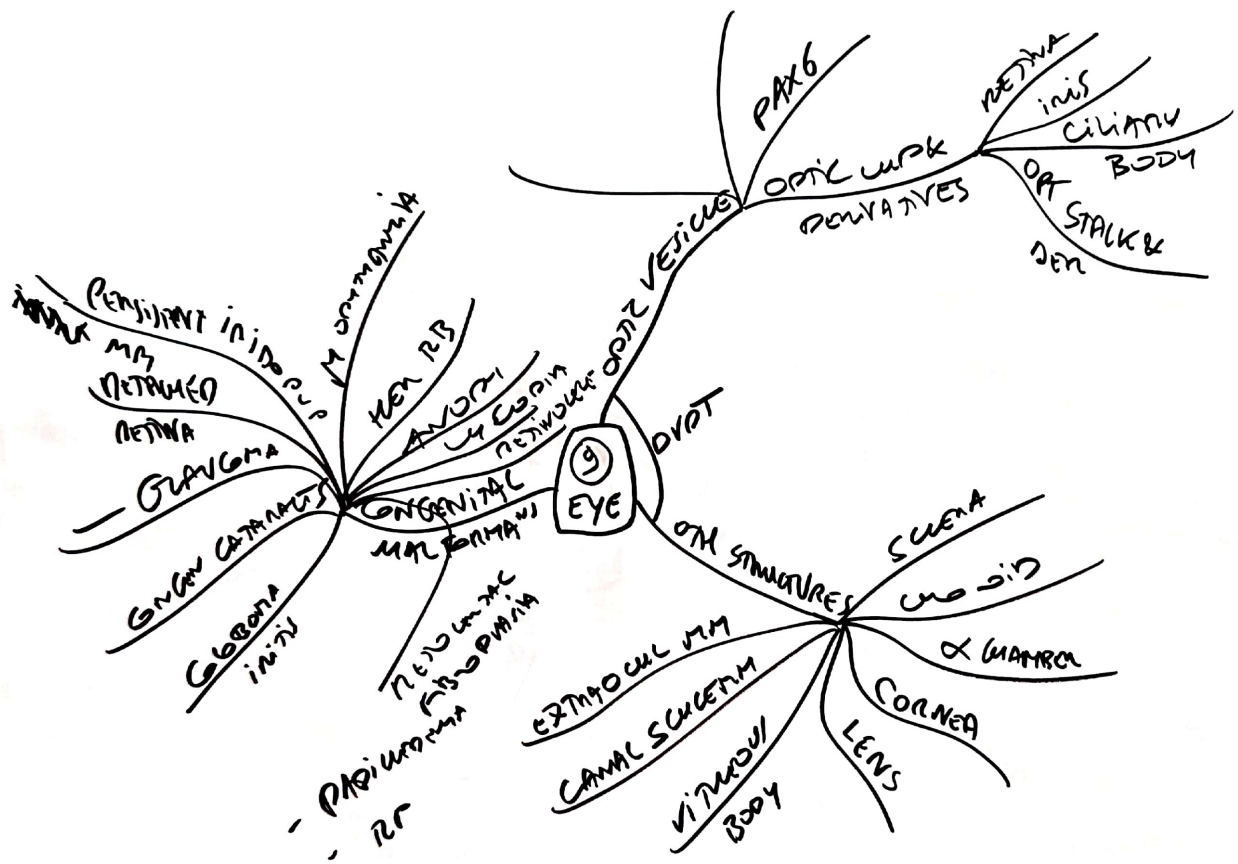 9
EYE
DVPT
OPTIC VESICLE
PAX6
OPTIC CUP &
DERIVATIVES
RETINA
IRIS
CILIARY
BODY
OPT
STALK &
DER
OTH STRUCTURES
SCLERA
CHOROID
α CHAMBER
CORNEA
LENS
VITREOUS
BODY
CANAL SCHLEMM
EXTRAOCUL MM
CONGENITAL
MALFORMA
RETINOCELE
CYCLOPIA
ANOPH
HER RB
M OPHTHALMIA
PERSISTENT IRIDOPUP
MB
DETACHED
RETINA
GLAUCOMA
CONGEN CATARACTS
COLOBOMA
IRITIS
RETROLENTAL
FIBROPLASIA
- PAPILLEDEMA
- RP